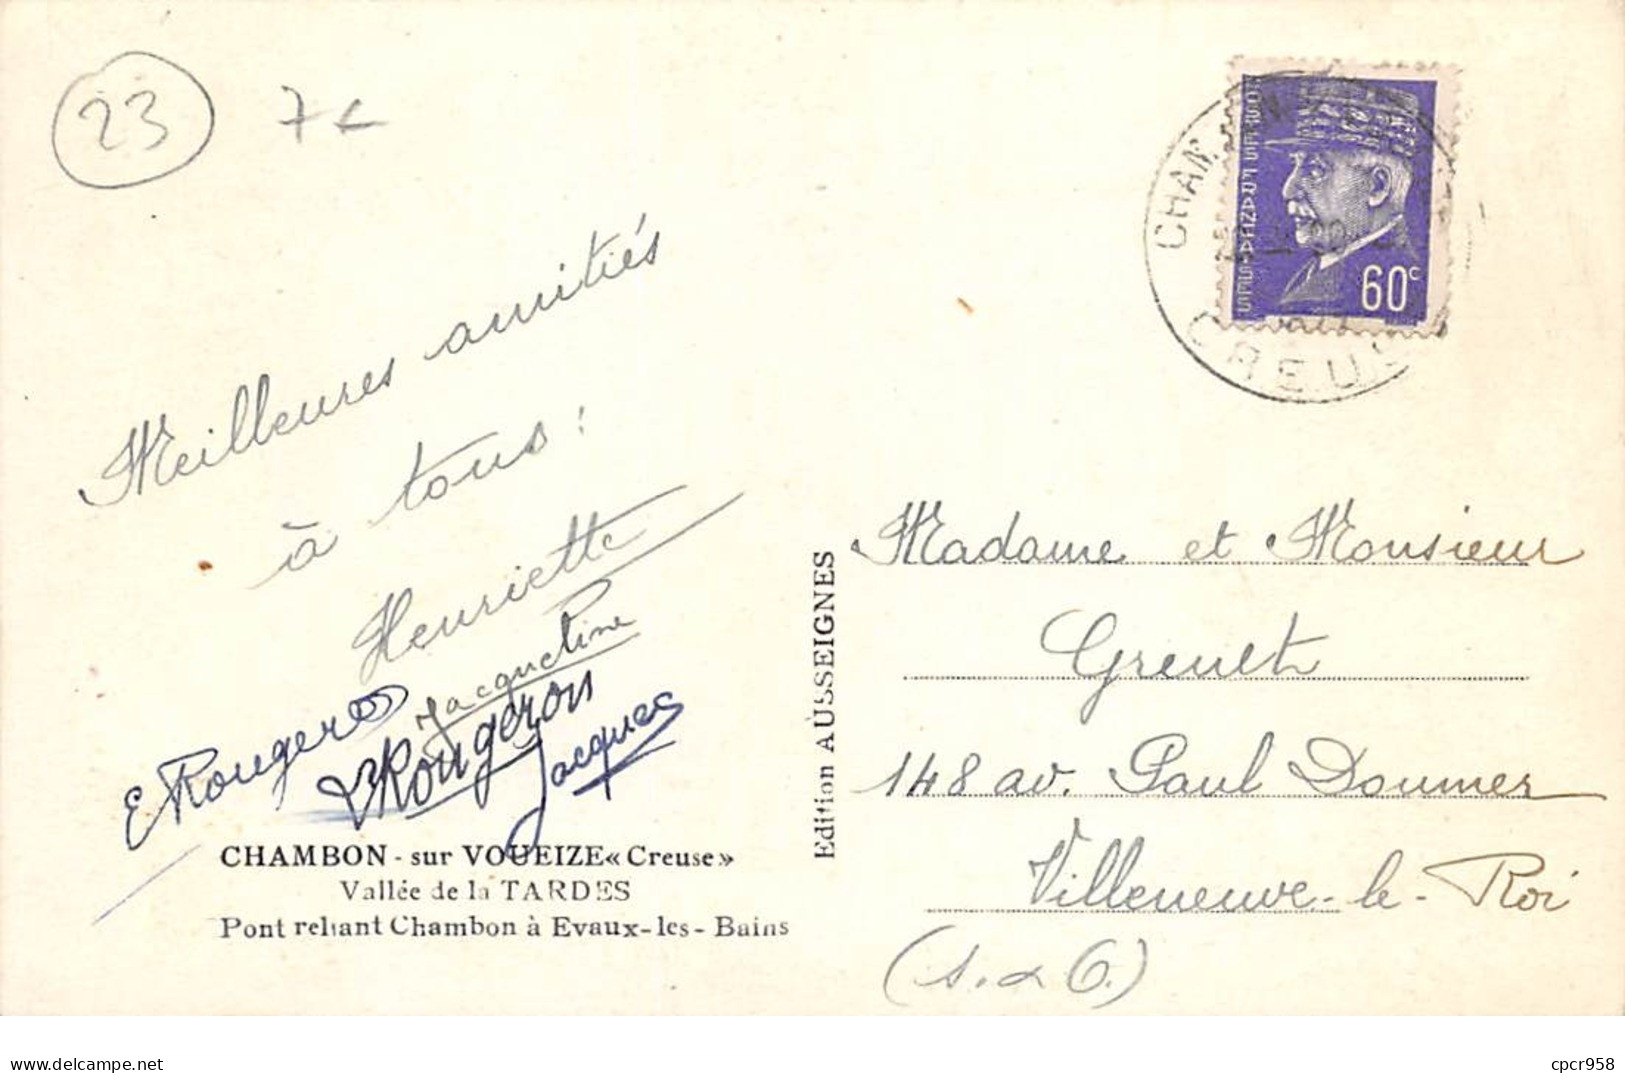 23
7€
Meilleures amitiés
à tous!
Henriette
Jacqueline
E Rougeron
Rougeron
Jacques
CHAMBON - sur VOUEIZE «Creuse»
Vallée de la TARDES
Pont reliant Chambon à Evaux-les-Bains
Edition AUSSEIGNES
POSTES FRANÇAISES
60c
CREUSE
Madame et Monsieur
148 av. Paul Doumer
Villeneuve-le-Roi
(S. & O.)
www.delcampe.net
cpcr958